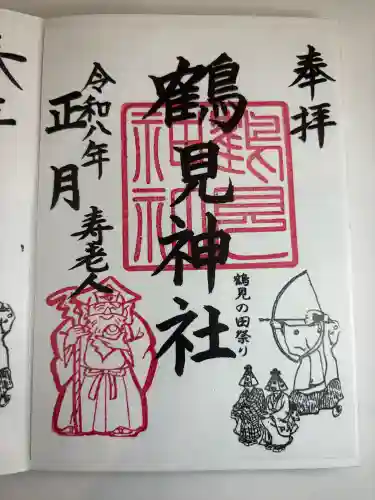 奉拝
鶴見神社
鶴見の田祭り
令和八年
正月
寿老人
鶴見神社